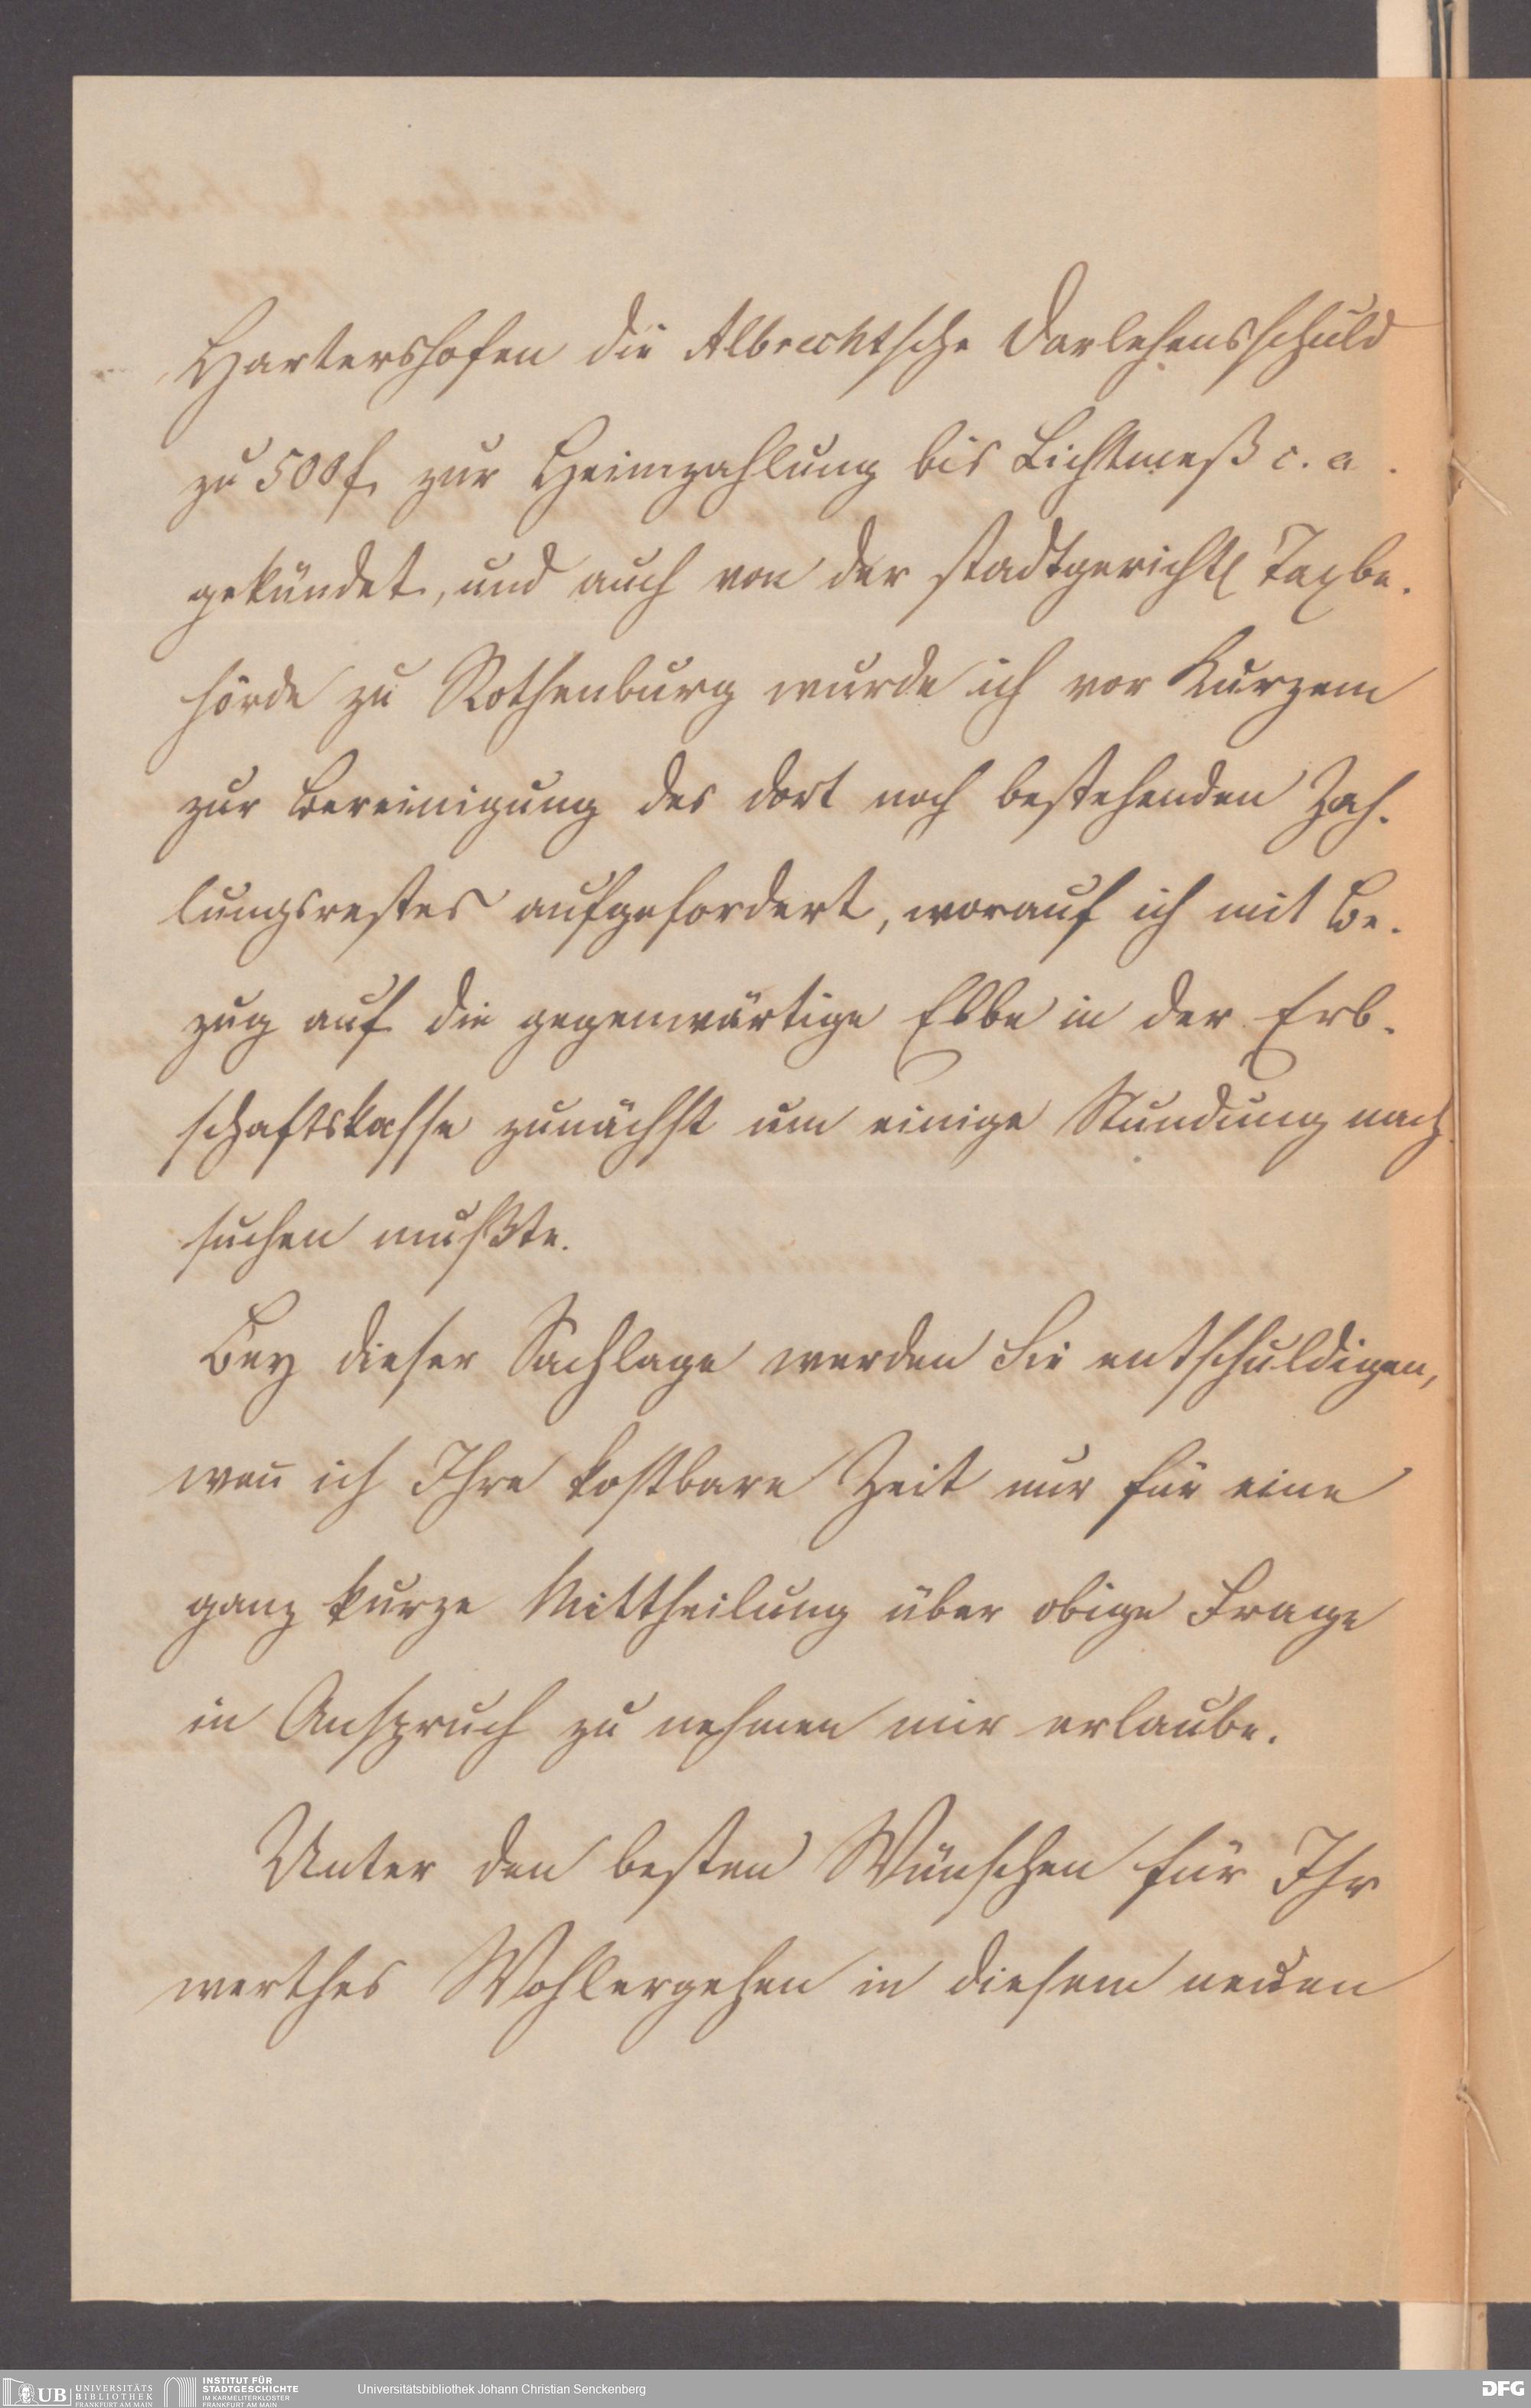 Hartershofen die Albrechtsche Darlehensschuld
zu 500 f. zur Heimzahlung bis Lichtmeß c. a.
gekündet, und auch von der stadtgerichtl. Taxbe-
hörde zu Rothenburg wurde ich vor Kurzem
zur Bereinigung des dort noch bestehenden Zah-
lungsrestes aufgefordert, worauf ich mit Be-
zug auf die gegenwärtige Ebbe in der Erb-
schaftskasse zunächst um einige Stundung nach-
suchen mußte.
Bey dieser Sachlage werden Sie entschuldigen,
wen̄ ich Ihre kostbare Zeit nur für eine
ganz kurze Mittheilung über obige Frage
in Anspruch zu nehmen mir erlaube.
Unter den besten Wünschen für Ihr
werthes Wohlergehen in diesem neuen
UB UNIVERSITÄTS BIBLIOTHEK FRANKFURT AM MAIN
INSTITUT FÜR STADTGESCHICHTE IM KARMELITERKLOSTER FRANKFURT AM MAIN
Universitätsbibliothek Johann Christian Senckenberg
DFG